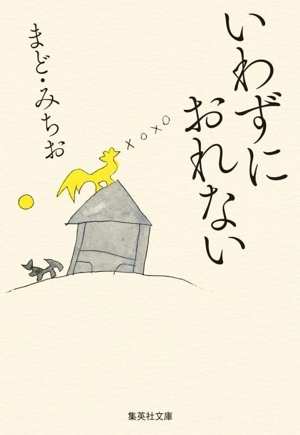 いわずに
おれない
まど・みちお
×o×o
集英社文庫